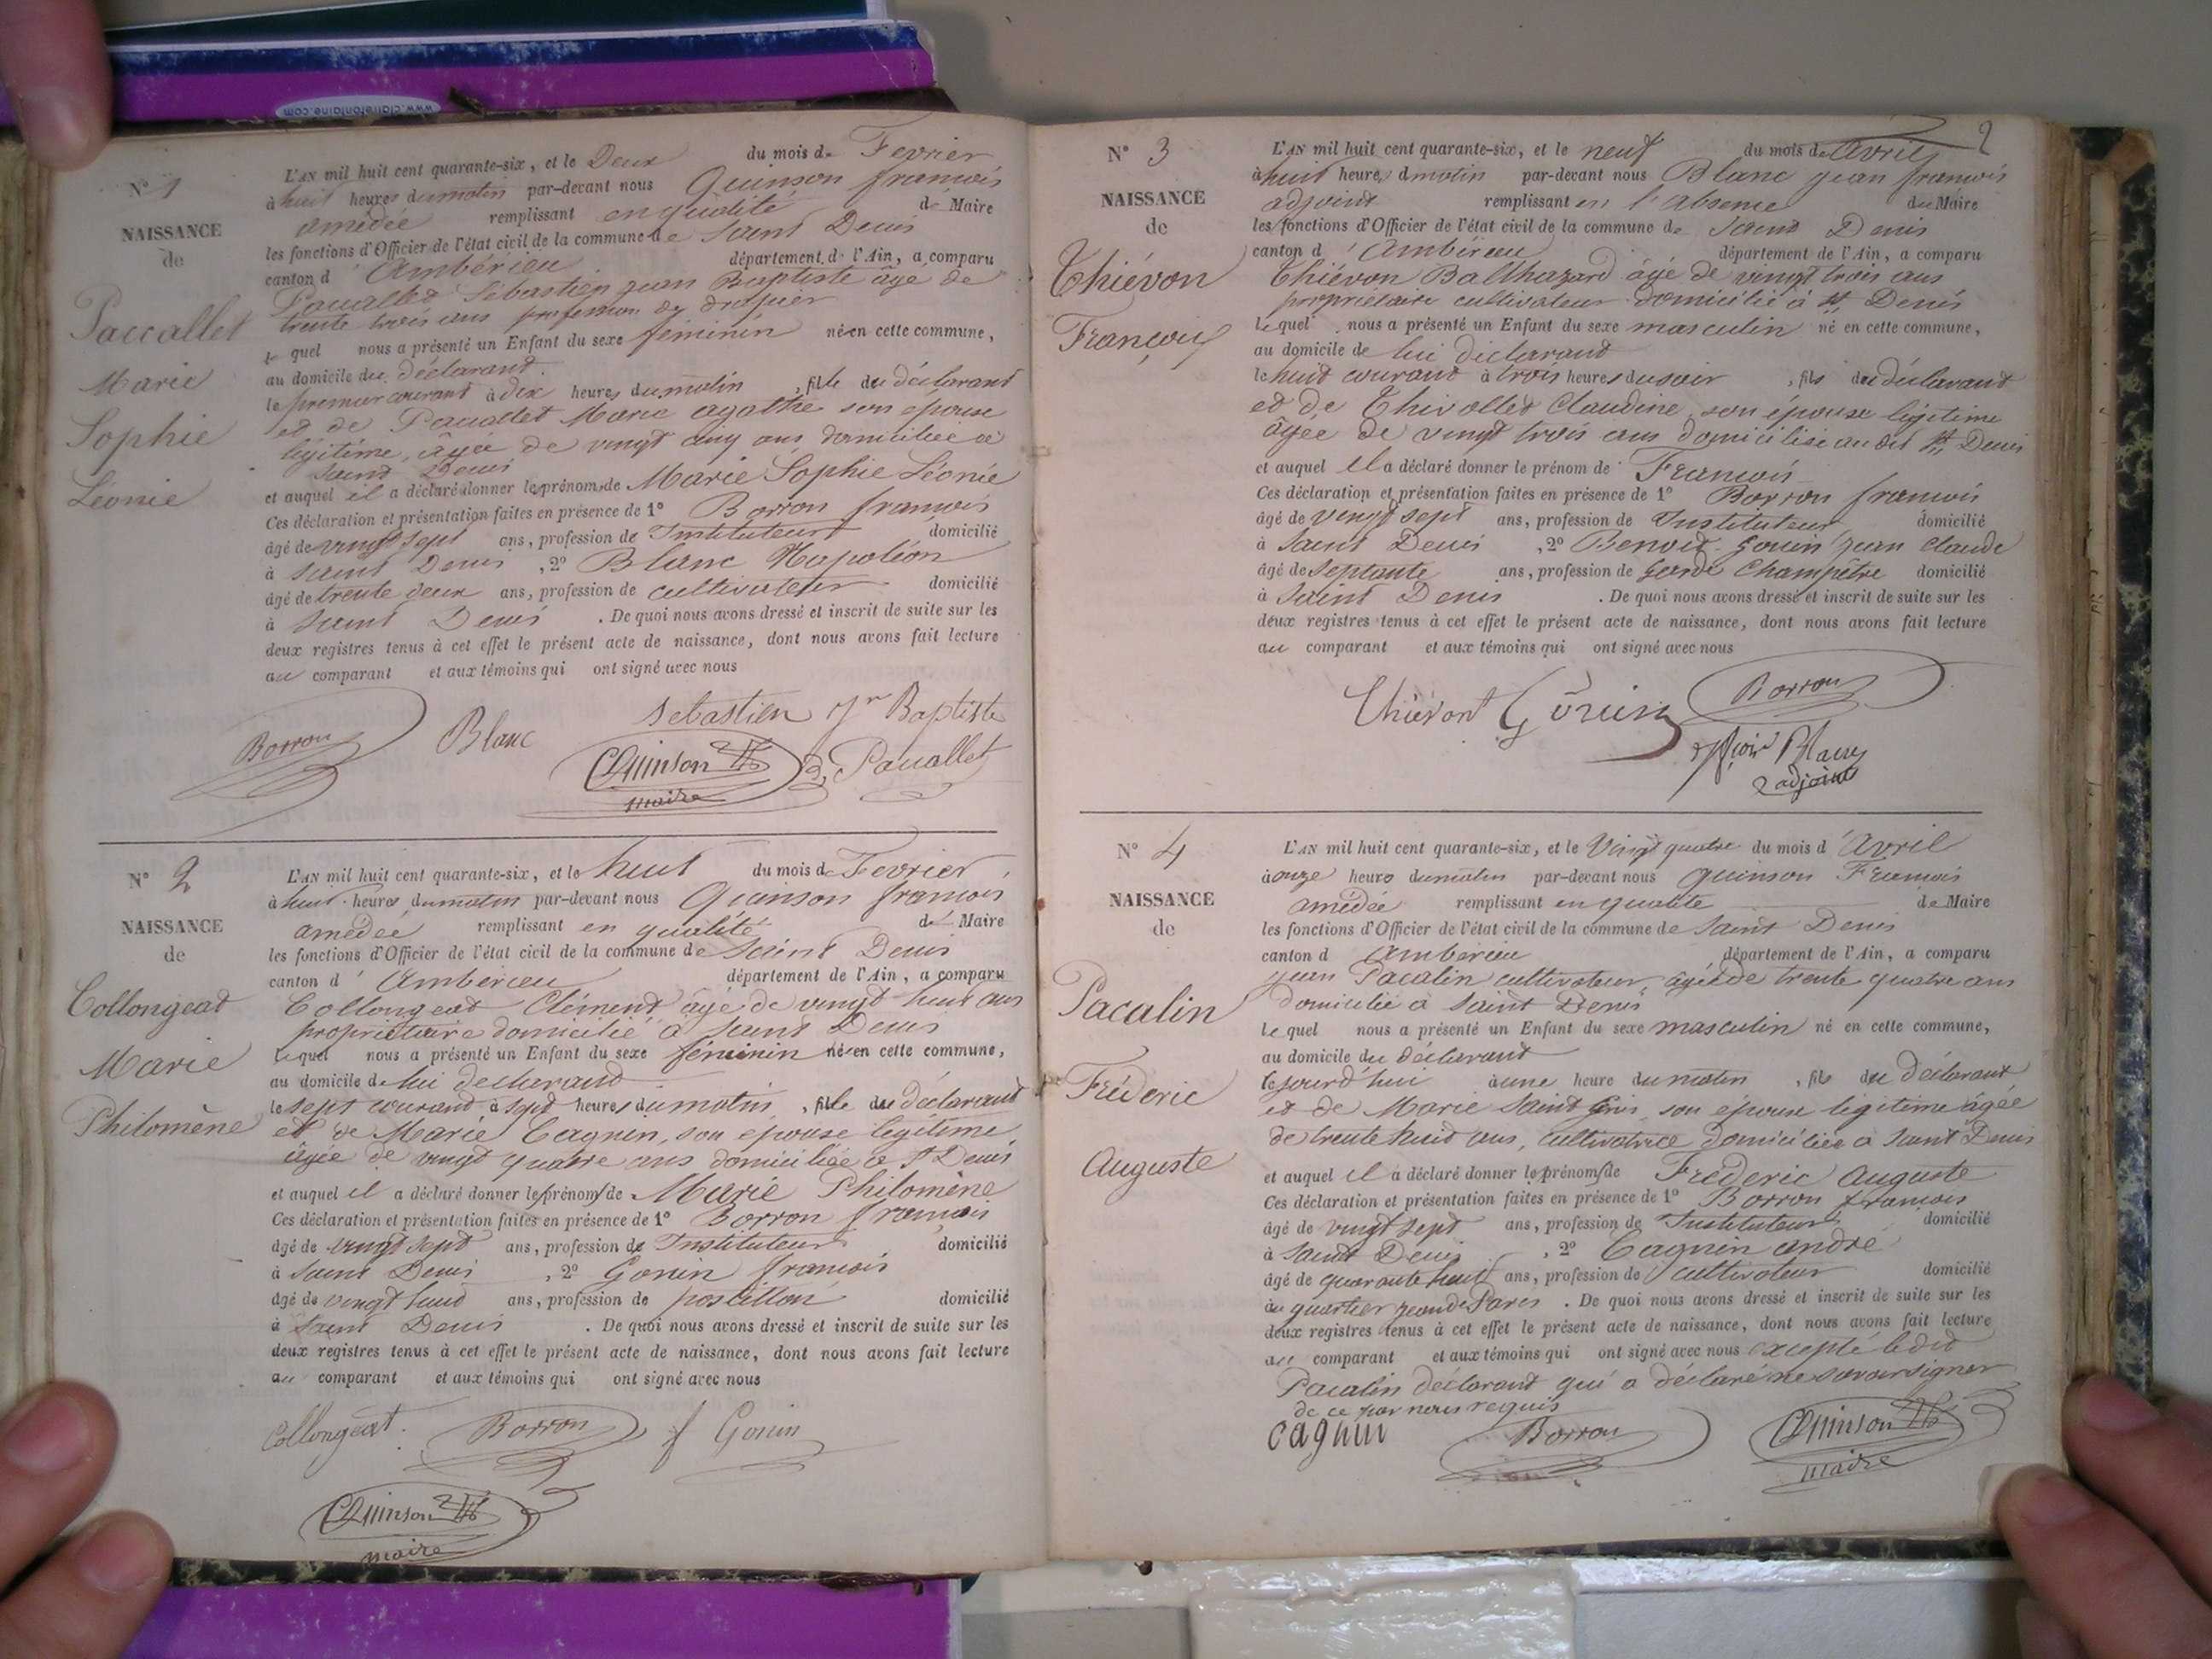 www.clairefontaine.com
N° 1
NAISSANCE
de
Paccallet
Marie
Sophie
Léonie
L'AN mil huit cent quarante-six, et le Deux du mois de Fevrier
à huit heures du matin par-devant nous Quinson francois
amédée remplissant en qualité de Maire
les fonctions d'Officier de l'état civil de la commune de Saint Denis
canton d'Ambérieu département de l'Ain, a comparu
Paccallet Sébastien jean Baptiste âgé de
trente trois ans profession de drapier
le quel nous a présenté un Enfant du sexe féminin née en cette commune,
au domicile du déclarant
le premier courant à dix heures du matin, fille du déclarant
et de Paccallet Marie agathe son épouse
légitime, âgée de vingt cinq ans domiciliée à
Saint Denis
et auquel il a déclaré donner les prénoms de Marie Sophie Léonie
Ces déclaration et présentation faites en présence de 1° Borron francois
âgé de vingt sept ans, profession de Instituteur domicilié
à Saint Denis, 2° Blanc Napoléon
âgé de trente deux ans, profession de cultivateur domicilié
à Saint Denis. De quoi nous avons dressé et inscrit de suite sur les
deux registres tenus à cet effet le présent acte de naissance, dont nous avons fait lecture
au comparant et aux témoins qui ont signé avec nous
Sebastien Jn Baptiste
Borron Blanc Quinson Paccallet
maire
N° 2
NAISSANCE
de
Collongeat
Marie
Philomène
L'AN mil huit cent quarante-six, et le huit du mois de Fevrier
à huit heures du matin par-devant nous Quinson francois
amédée remplissant en qualité de Maire
les fonctions d'Officier de l'état civil de la commune de Saint Denis
canton d'Ambérieu département de l'Ain, a comparu
Collongeat Clément âgé de vingt huit ans
propriétaire domicilié à Saint Denis
le quel nous a présenté un Enfant du sexe féminin née en cette commune,
au domicile de lui déclarant
le sept courant à sept heures du matin, fille du déclarant
et de Marie Cagnin, son épouse légitime
âgée de vingt quatre ans domiciliée à St Denis
et auquel il a déclaré donner les prénoms de Marie Philomène
Ces déclaration et présentation faites en présence de 1° Borron francois
âgé de vingt sept ans, profession de Instituteur domicilié
à Saint Denis, 2° Gonin francois
âgé de vingt huit ans, profession de postillon domicilié
à Saint Denis. De quoi nous avons dressé et inscrit de suite sur les
deux registres tenus à cet effet le présent acte de naissance, dont nous avons fait lecture
au comparant et aux témoins qui ont signé avec nous
Collongeat Borron f Gonin
Quinson
maire
2
N° 3
NAISSANCE
de
Thiévon
François
L'AN mil huit cent quarante-six, et le neuf du mois de Avril
à huit heures du matin par-devant nous Blanc jean francois
adjoint remplissant en l'absence du Maire
les fonctions d'Officier de l'état civil de la commune de Saint Denis
canton d'Ambérieu département de l'Ain, a comparu
Thiévon Balthazard âgé de vingt trois ans
propriétaire cultivateur domicilié à St Denis
le quel nous a présenté un Enfant du sexe masculin né en cette commune,
au domicile de lui déclarant
le huit courant à trois heures du soir, fils du déclarant
et de Thivollet Claudine, son épouse légitime
âgée de vingt trois ans domiciliée au dit St Denis
et auquel il a déclaré donner le prénom de Francois
Ces déclaration et présentation faites en présence de 1° Borron francois
âgé de vingt sept ans, profession de Instituteur domicilié
à Saint Denis, 2° Benoit-Gouin jean Claude
âgé de septante ans, profession de garde Champêtre domicilié
à Saint Denis. De quoi nous avons dressé et inscrit de suite sur les
deux registres tenus à cet effet le présent acte de naissance, dont nous avons fait lecture
au comparant et aux témoins qui ont signé avec nous
Thiévont Borron
Blanc
adjoint
N° 4
NAISSANCE
de
Pacalin
Fréderic
Auguste
L'AN mil huit cent quarante-six, et le Vingt quatre du mois d'Avril
à onze heures du matin par-devant nous Quinson Francois
amédée remplissant en qualité de Maire
les fonctions d'Officier de l'état civil de la commune de Saint Denis
canton d Ambérieu département de l'Ain, a comparu
jean Pacalin cultivateur, âgé de trente quatre ans
domicilié à Saint Denis
le quel nous a présenté un Enfant du sexe masculin né en cette commune,
au domicile du déclarant
lejourd'hui à une heure du matin, fils du déclarant
et de Marie Saint, son épouse légitime âgée
de trente huit ans, cultivatrice domiciliée à Saint Denis
et auquel il a déclaré donner les prénoms de Fréderic Auguste
Ces déclaration et présentation faites en présence de 1° Borron francois
âgé de vingt sept ans, profession de Instituteur domicilié
à Saint Denis, 2° Cagnin andré
âgé de quarante huit ans, profession de cultivateur domicilié
au quartier Paris. De quoi nous avons dressé et inscrit de suite sur les
deux registres tenus à cet effet le présent acte de naissance, dont nous avons fait lecture
au comparant et aux témoins qui ont signé avec nous excepté ledit
Pacalin déclarant qui a déclaré ne savoir signer
de ce par nous requis
cagnin Borron Quinson
maire